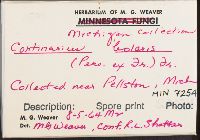 HERBARIUM OF M. G. WEAVER
MINNESOTA FUNGI
Michigan Collection
Cortinarius bolaris
(Pers. ex Fr.) Fr.
Collected near Pellston, Mich
MIN 7254
Description: Spore print photo
M. G. Weaver 8-5-64 Mr
Det. MGWeaver, Conf. R.L. Shaffer